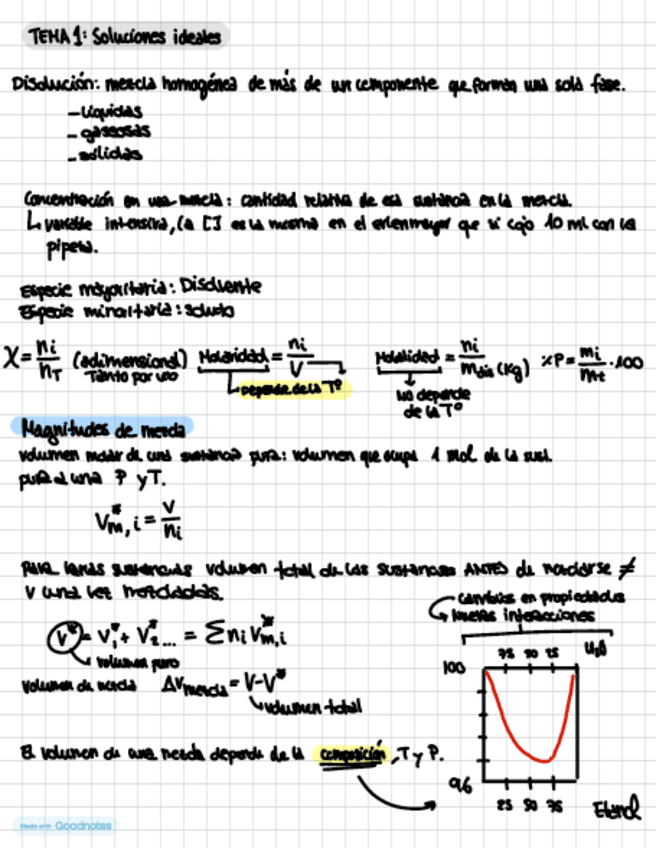 TEMA 1: Soluciones ideales
Disolución: mezcla homogénea de más de un componente que forman una sola fase.
- líquidas
- gaseosas
- sólidas
Concentración en una mezcla: cantidad relativa de esa sustancia en la mezcla.
↳ variable intensiva, la [] es la misma en el erlenmeyer que si cojo 10 ml con la
pipeta.
Especie mayoritaria: Disolvente
Especie minoritaria: soluto
χ = ni/nT (adimensional) Molaridad = ni/V Molalidad = ni/mdis (Kg) %P = mi/mt · 100
Tanto por uno
Depende de la Tº
No depende
de la Tº
Magnitudes de mezcla
Volumen molar de una sustancia pura: volumen que ocupa 1 mol de la sust.
pura a una P y T.
V*m,i = V/ni
Para varias sustancias volumen total de las sustancias ANTES de mezclarse ≠
V una vez mezcladas.
cambios en propiedades
nuevas interacciones
V* = V1* + V2* ... = Σ ni V*m,i
volumen puro
Volumen de mezcla ΔVmezcla = V - V*
volumen total
75 50 25 H2O
100
El volumen de una mezcla depende de la composición, T y P.
96
25 50 75 Etanol
Made with Goodnotes